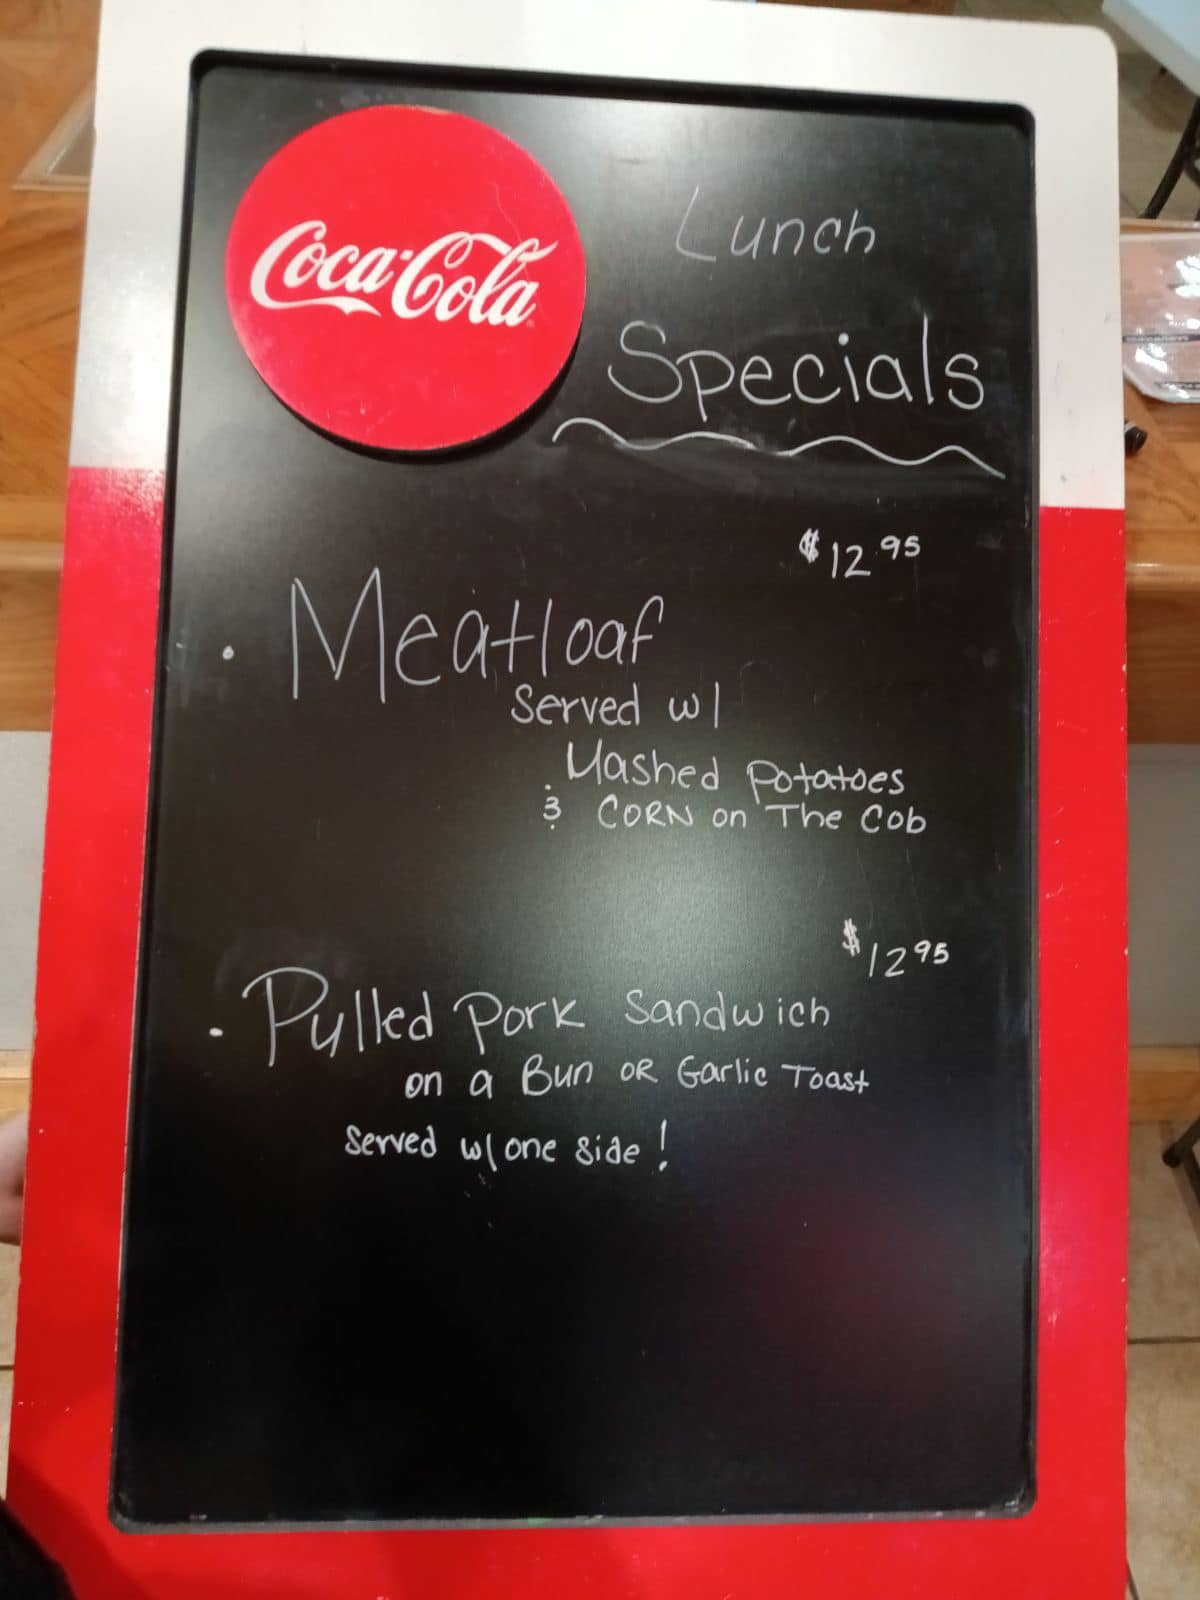 Coca-Cola
Lunch
Specials
$12.95
• Meatloaf
Served w/
Mashed Potatoes
& CORN on The Cob
$12 95
• Pulled Pork Sandwich
on a Bun OR Garlic Toast
Served w/ one Side!